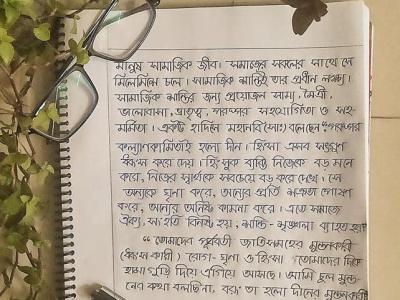 মানুষ সামাজিক জীব। সমাজের সকলের সাথে সে
মিলেমিশে চলে। সামাজিক শান্তিই তার প্রধান লক্ষ্য।
সামাজিক শান্তির জন্য প্রয়োজন সাম্য, মৈত্রী,
ভালোবাসা, ভ্রাতৃত্ব, পরস্পর সহযোগিতা ও সহ-
মর্মিতা। একটি হাদিসে মহানবি (সাঃ) বলেছেন পরস্পর
কল্যাণকামিতাই হলো দীন। হিংসা এসব সদ্গুণ
ধ্বংস করে দেয়। হিংসুক ব্যক্তি নিজেকে বড় মনে
করে, নিজের স্বার্থকে সবচেয়ে বড় করে দেখে। সে
অন্যকে ঘৃনা করে, অন্যের প্রতি শত্রুতা পোষণ
করে, অন্যের অনিষ্ট কামনা করে। এতে সমাজে
ঐক্য, সংহতি বিনষ্ট হয়, শান্তি-শৃঙ্খলা ব্যাহত হয়।
"তোমাদের পূর্ববর্তী জাতিসমূহের মুন্ডনকারী
(ধ্বংসকারী) রোগ-ঘৃনা ও হিংসা তোমাদের দিকে
হামাগুড়ি দিয়ে এগিয়ে আসছে। আমি চুল মুন্ড-
নের কথা বলছিনা, বরং তা হলো দীনের মুন্ডনকারী